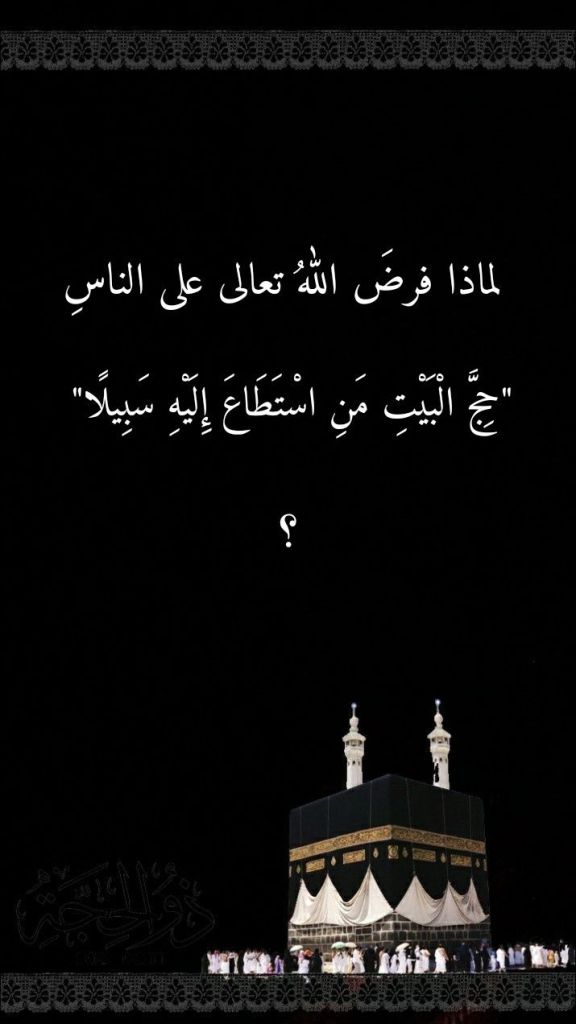 لماذا فرضَ اللهُ تعالى على الناسِ
"حِجَّ الْبَيْتِ مَنِ اسْتَطَاعَ إِلَيْهِ سَبِيلًا"
؟
ذُو الحِجَّةِ